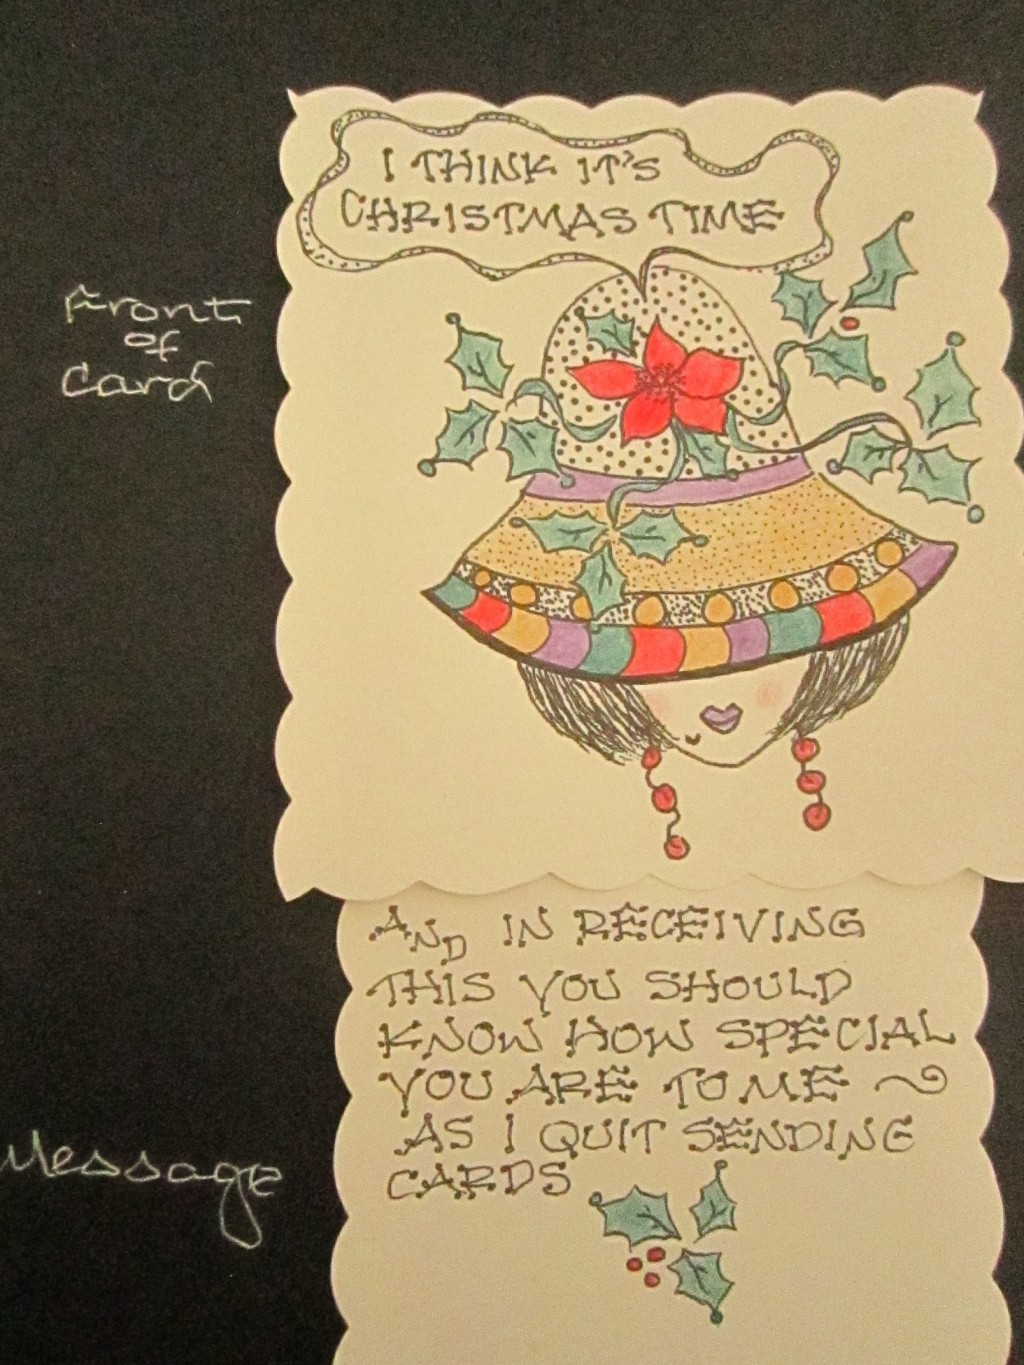 I THINK IT'S
CHRISTMAS TIME
Front
of
Card
AND IN RECEIVING
THIS YOU SHOULD
KNOW HOW SPECIAL
YOU ARE TO ME ~
AS I QUIT SENDING
CARDS
Message